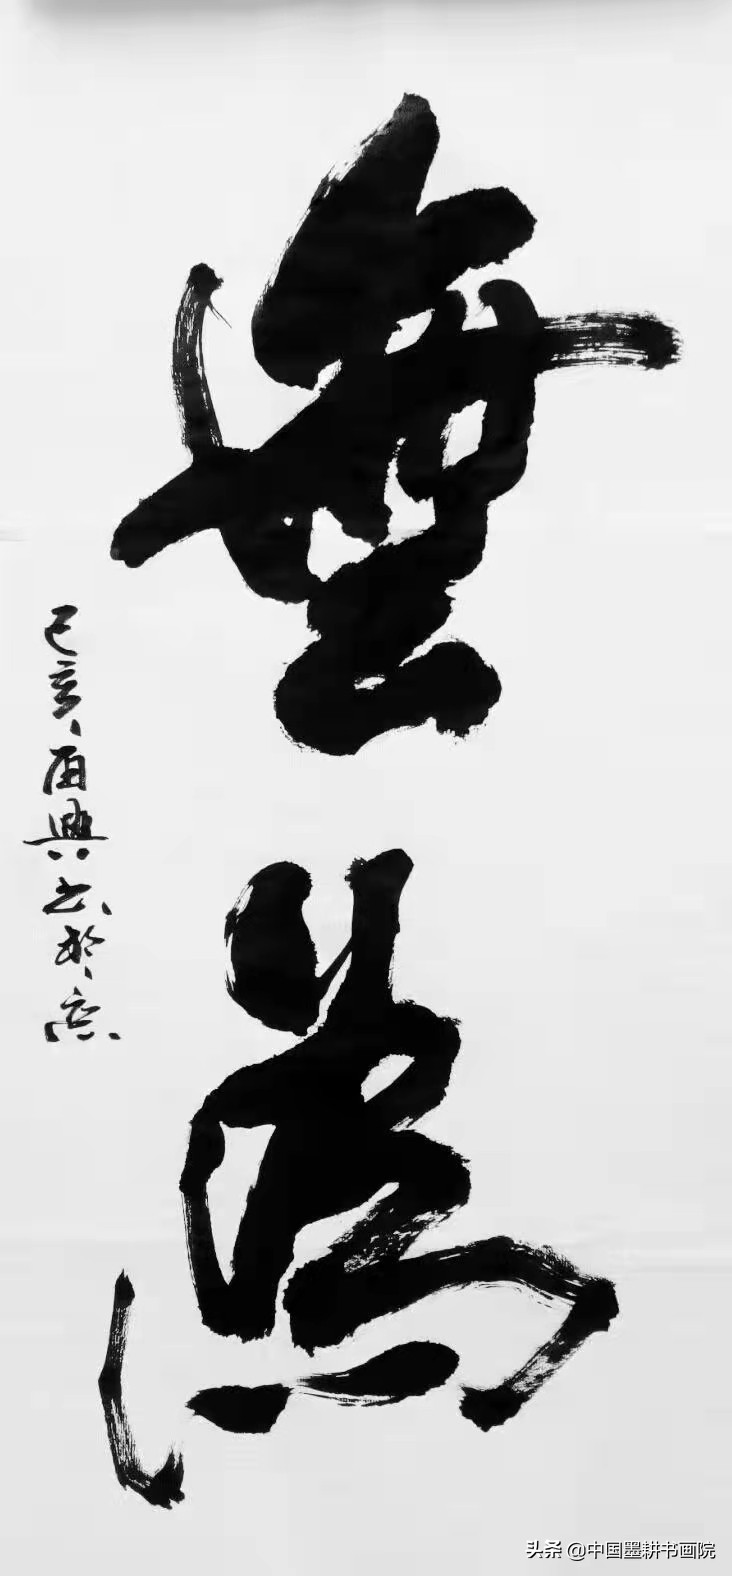 無為
己亥再興书於京
头条 @中国墨耕书画院